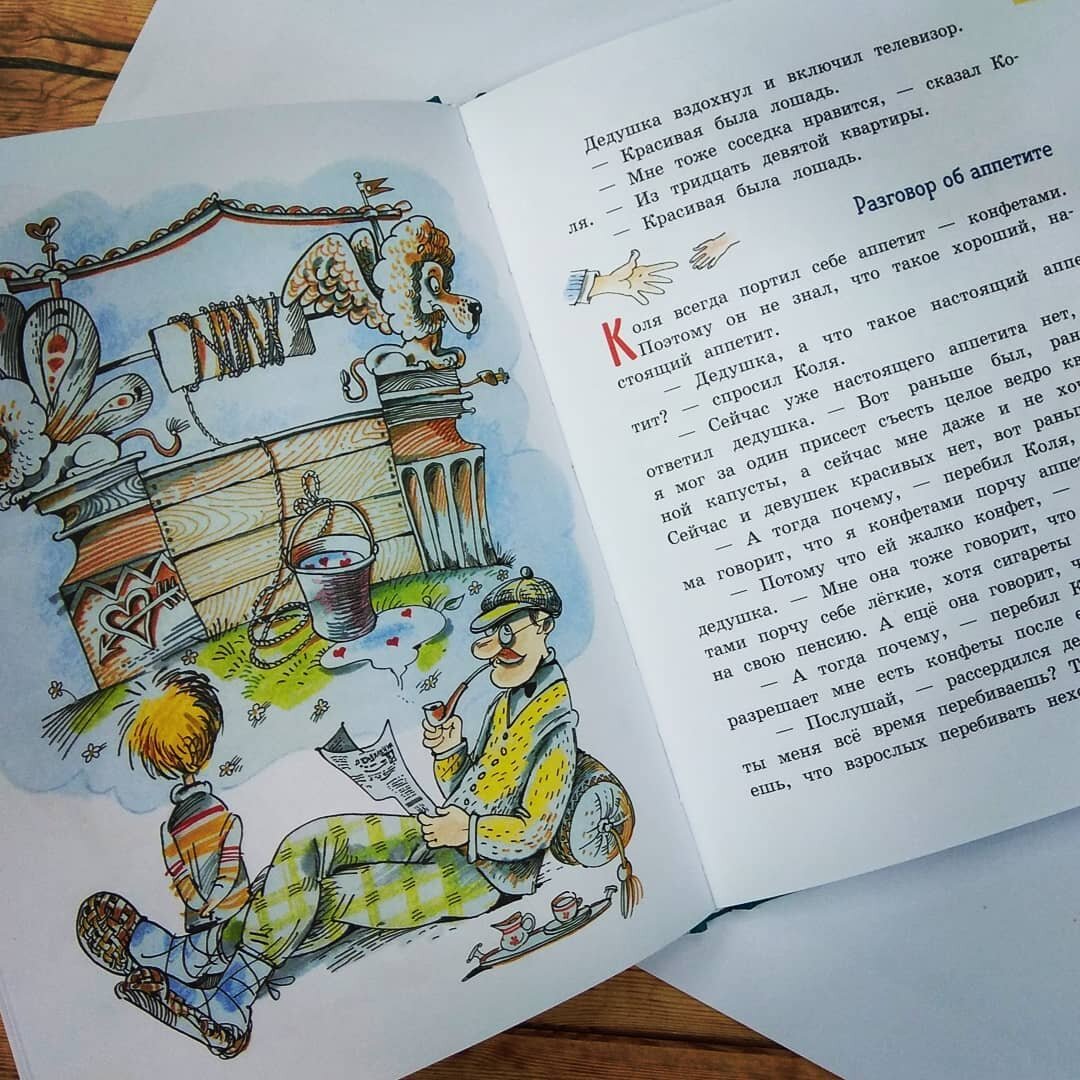 Дедушка вздохнул и включил телевизор.
— Красивая была лошадь.
— Мне тоже соседка нравится, — сказал Ко-
ля. — Из тридцать девятой квартиры.
— Красивая была лошадь.
Разговор об аппетите
Коля всегда портил себе аппетит — конфетами.
Поэтому он не знал, что такое хороший, на-
стоящий аппетит.
— Дедушка, а что такое настоящий аппе
тит? — спросил Коля.
— Сейчас уже настоящего аппетита нет,
ответил дедушка. — Вот раньше был, ран
я мог за один присест съесть целое ведро кв
ной капусты, а сейчас мне даже и не хот
Сейчас и девушек красивых нет, вот рань
— А тогда почему, — перебил Коля,
ма говорит, что я конфетами порчу аппе
— Потому что ей жалко конфет, —
дедушка. — Мне она тоже говорит, что
тами порчу себе лёгкие, хотя сигареты
на свою пенсию. А ещё она говорит, ч
— А тогда почему, — перебил К
разрешает мне есть конфеты после
— Послушай, — рассердился де
ты меня всё время перебиваешь? Т
ешь, что взрослых перебивать нехо